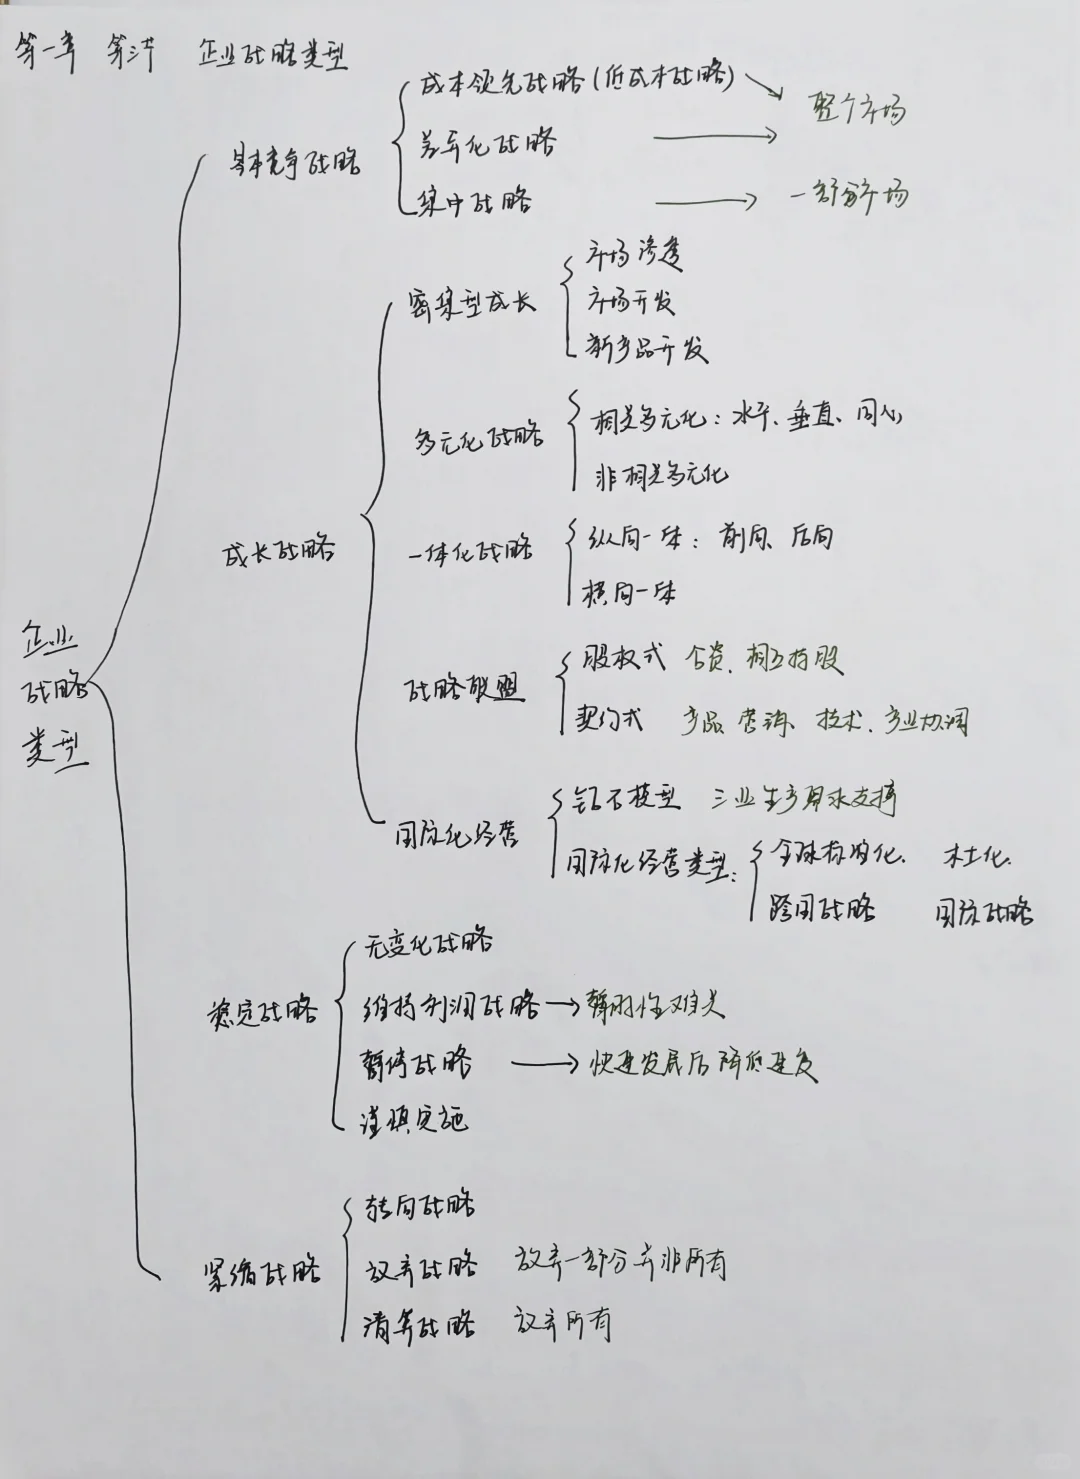 第一章 第三节 企业战略类型
企业
战略
类型
基本竞争战略
成本领先战略(低成本战略)
差异化战略
整个市场
集中战略
一部分市场
成长战略
密集型成长
市场渗透
市场开发
新产品开发
多元化战略
相关多元化:水平、垂直、同心
非相关多元化
一体化战略
纵向一体:前向、后向
横向一体
战略联盟
股权式 合资、相互持股
契约式 产品 营销、技术、产业协调
国际化经营
钻石模型 三业生产需求支持
国际化经营类型:
全球标准化、 本土化、
跨国战略 国际战略
稳定战略
无变化战略
维持利润战略 → 暂时性难关
暂停战略 → 快速发展后降低速度
谨慎实施
紧缩战略
转向战略
放弃战略 放弃一部分并非所有
清算战略 放弃所有